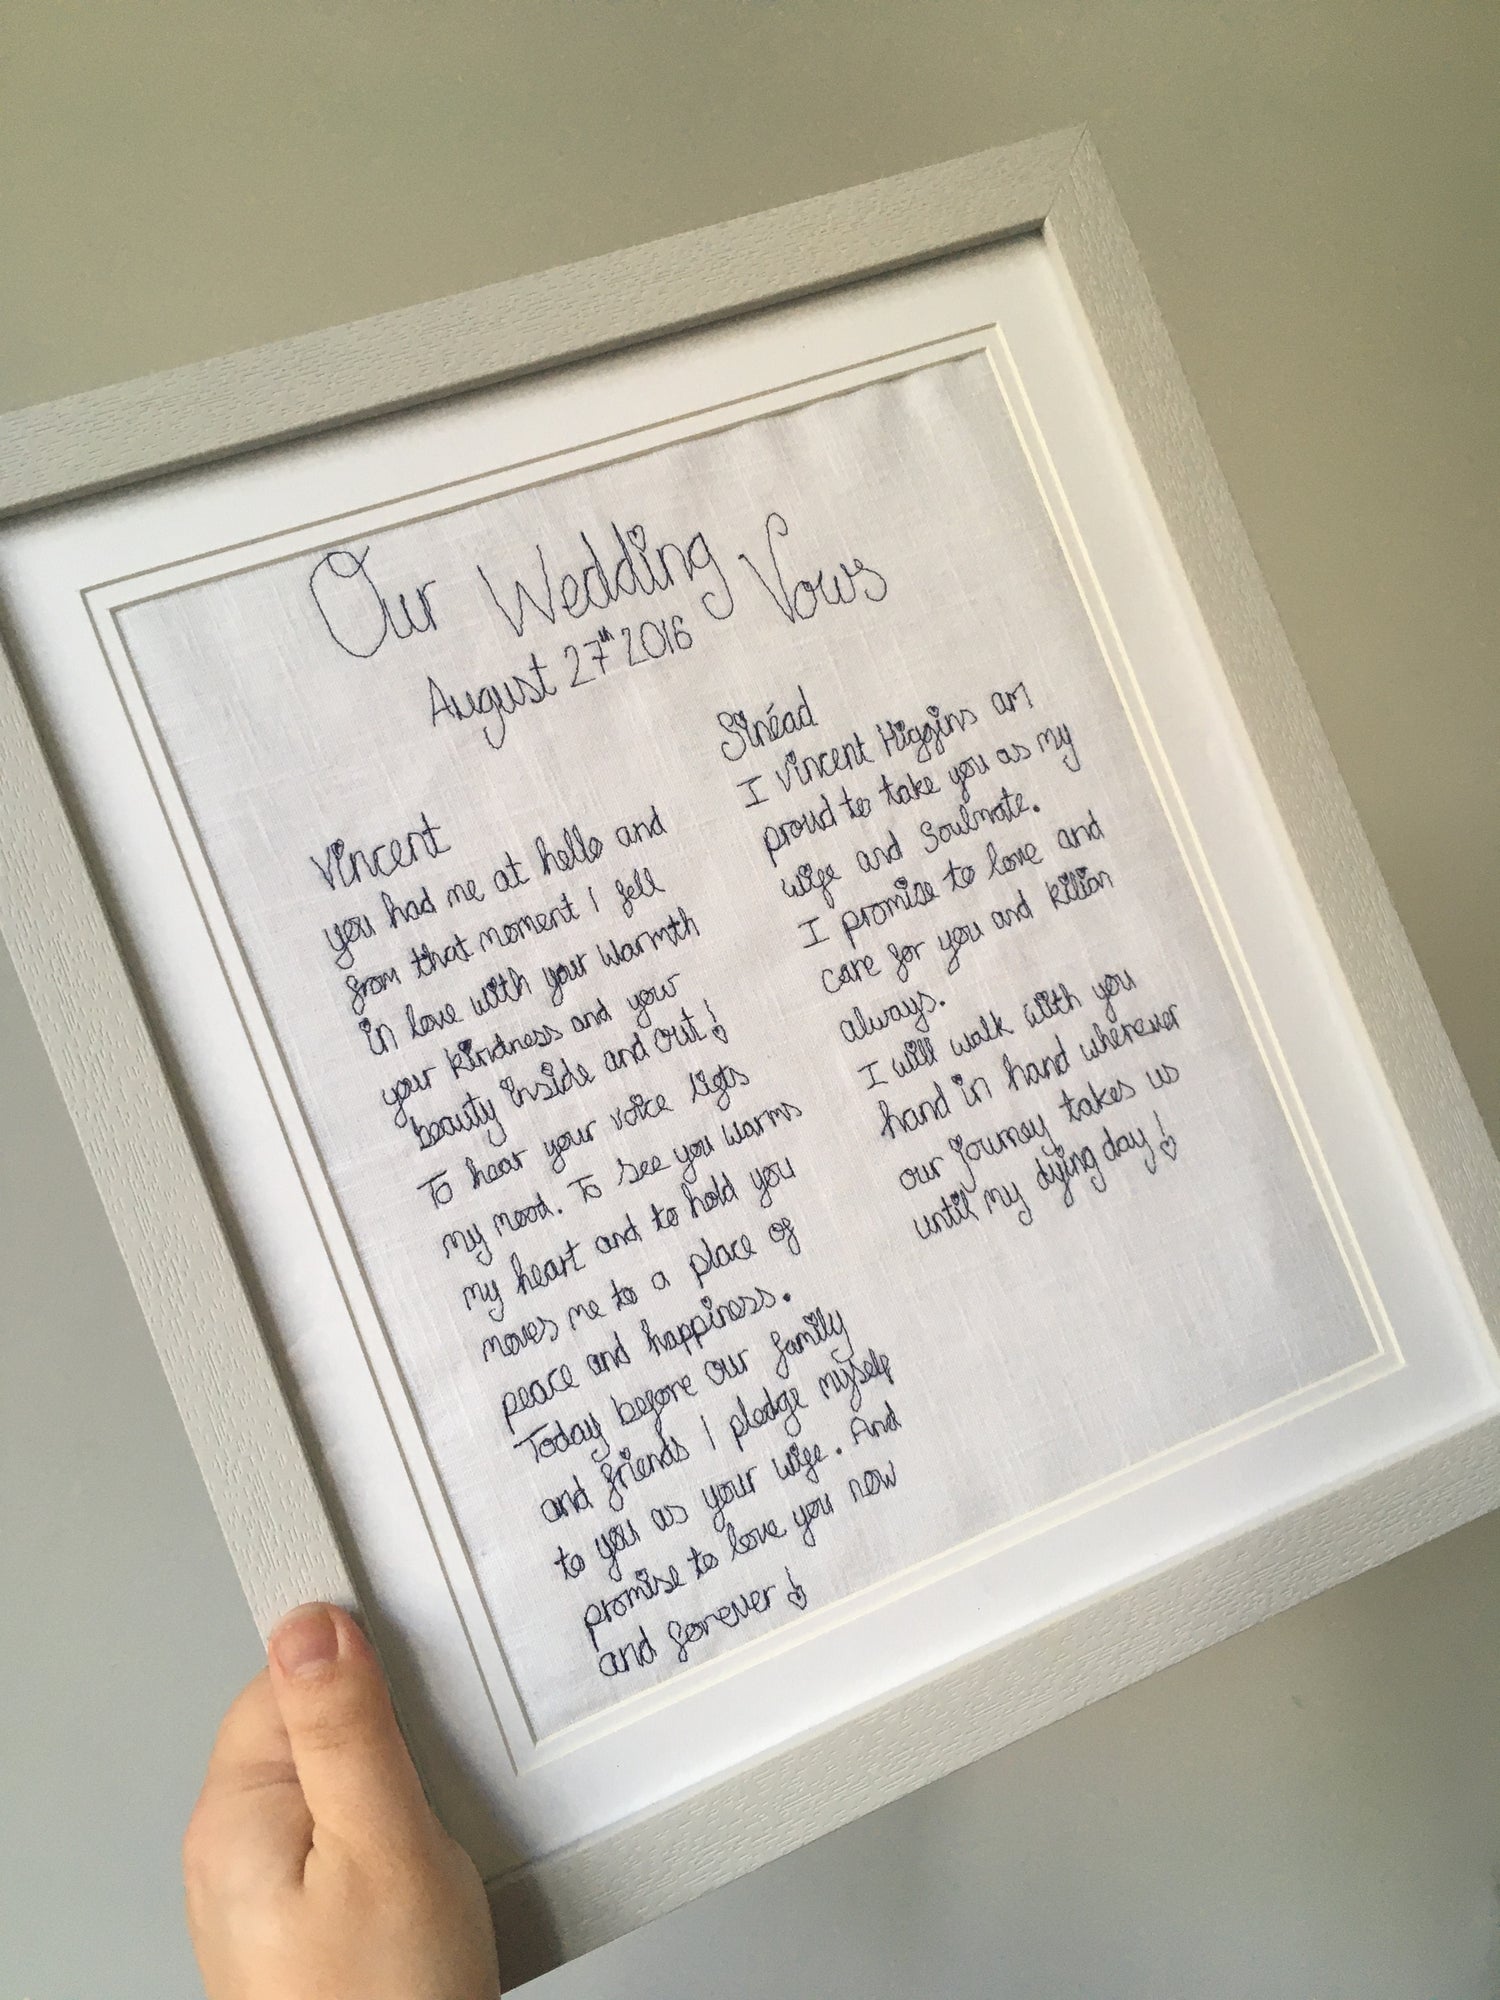 Our Wedding Vows
August 27th 2016
Vincent
you had me at hello and
from that moment I fell
in love with your warmth
your kindness and your
beauty inside and out!
To hear your voice ligts
my mood. To see you warms
my heart and to hold you
moves me to a place of
peace and happiness.
Today before our family
and friends I pledge myself
to you as your wife. And
promise to love you now
and forever!
Sinéad
I Vincent Higgins am
proud to take you as my
wife and Soulmate.
I promise to love and
care for you and Kilian
always.
I will walk with you
hand in hand wherever
our journey takes us
until my dying day!